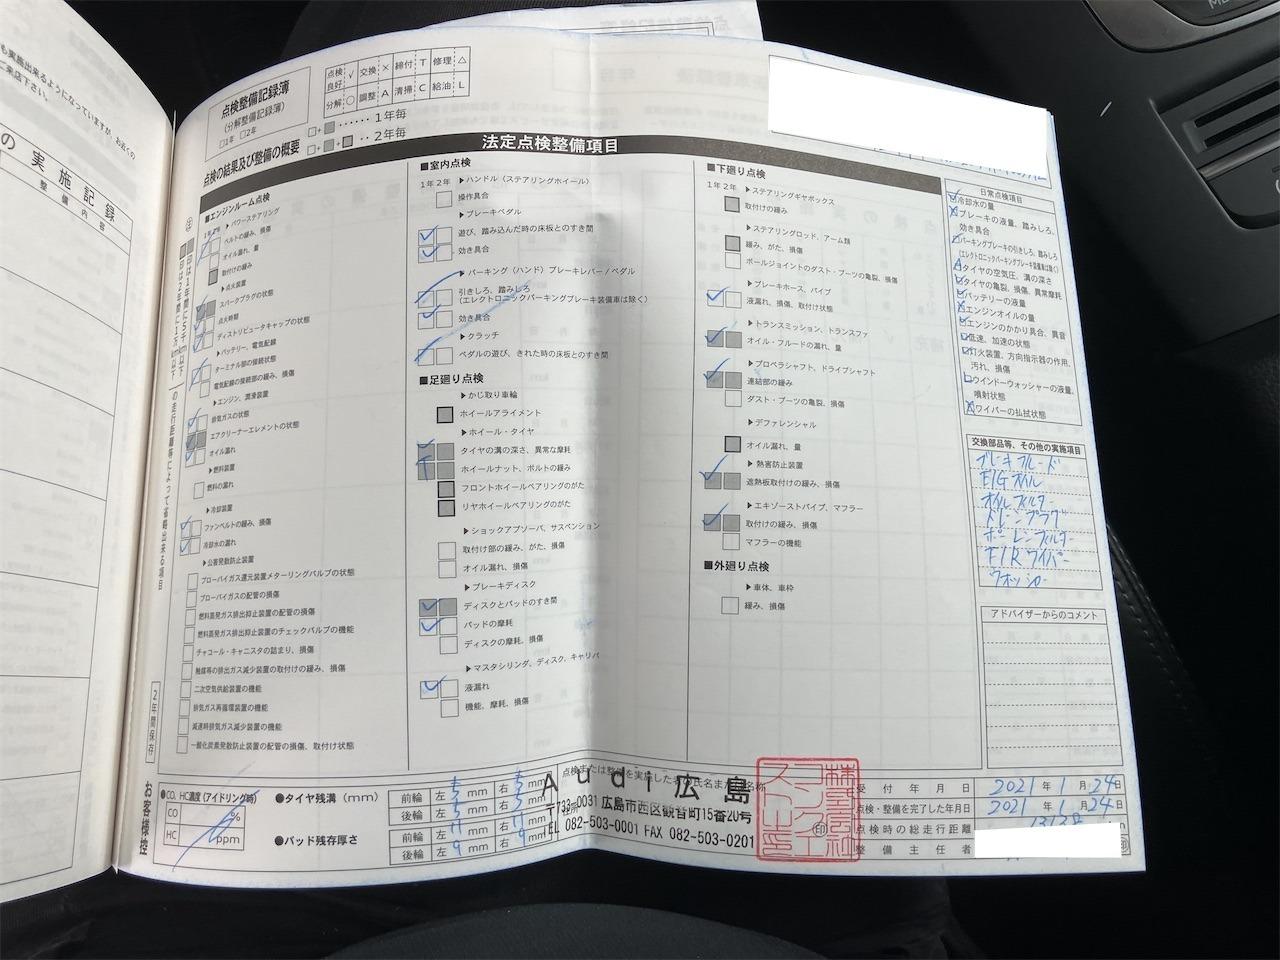 も実施出来るようになっていますが、お近くの
ご来店下さい。
の実施記録
整備内容
点検整備記録簿
(分解整備記録簿)
□1年 □2年
点検良好 √ 交換 × 締付 T 修理 △
分解 ○ 調整 A 清掃 C 給油 L
点検の結果及び整備の概要
□+■ ‥‥‥ 1年毎
□+■+■ ‥ 2年毎
法定点検整備項目
■エンジンルーム点検
1年 2年
▶パワーステアリング
ベルトの緩み、損傷
オイル漏れ、量
取付けの緩み
▶点火装置
スパークプラグの状態
点火時期
ディストリビュータキャップの状態
▶バッテリー、電気配線
ターミナル部の接続状態
電気配線の接続部の緩み、損傷
▶エンジン、潤滑装置
排気ガスの状態
エアクリーナーエレメントの状態
オイル漏れ
▶燃料装置
燃料の漏れ
▶冷却装置
ファンベルトの緩み、損傷
冷却水の漏れ
▶公害発散防止装置
ブローバイガス還元装置メターリングバルブの状態
ブローバイガスの配管の損傷
燃料蒸発ガス排出抑止装置の配管の損傷
燃料蒸発ガス排出抑止装置のチェックバルブの機能
チャコール・キャニスタの詰まり、損傷
触媒等の排出ガス減少装置の取付けの緩み、損傷
二次空気供給装置の機能
排気ガス再循環装置の機能
減速時排気ガス減少装置の機能
一酸化炭素発散防止装置の配管の損傷、取付け状態
■室内点検
1年 2年
▶ハンドル(ステアリングホイール)
操作具合
▶ブレーキペダル
遊び、踏み込んだ時の床板とのすき間
効き具合
▶パーキング(ハンド)ブレーキレバー/ペダル
引きしろ、踏みしろ
(エレクトロニックパーキングブレーキ装備車は除く)
効き具合
▶クラッチ
ペダルの遊び、きれた時の床板とのすき間
■足廻り点検
▶かじ取り車輪
ホイールアライメント
▶ホイール・タイヤ
タイヤの溝の深さ、異常な摩耗
ホイールナット、ボルトの緩み
フロントホイールベアリングのがた
リヤホイールベアリングのがた
▶ショックアブソーバ、サスペンション
取付け部の緩み、がた、損傷
オイル漏れ、損傷
▶ブレーキディスク
ディスクとパッドのすき間
パッドの摩耗
ディスクの摩耗、損傷
▶マスタシリンダ、ディスク、キャリパ
液漏れ
機能、摩耗、損傷
■下廻り点検
1年 2年
▶ステアリングギヤボックス
取付けの緩み
▶ステアリングロッド、アーム類
緩み、がた、損傷
ボールジョイントのダスト・ブーツの亀裂、損傷
▶ブレーキホース、パイプ
液漏れ、損傷、取付け状態
▶トランスミッション、トランスファ
オイル・フルードの漏れ、量
▶プロペラシャフト、ドライブシャフト
連結部の緩み
ダスト・ブーツの亀裂、損傷
▶デファレンシャル
オイル漏れ、量
▶熱害防止装置
遮熱板取付けの緩み、損傷
▶エキゾーストパイプ、マフラー
取付けの緩み、損傷
マフラーの機能
■外廻り点検
▶車体、車枠
緩み、損傷
日常点検項目
冷却水の量
ブレーキの液量、踏みしろ、
効き具合
パーキングブレーキの引きしろ、踏みしろ
(エレクトロニックパーキングブレーキ装備車は除く)
タイヤの空気圧、溝の深さ
タイヤの亀裂、損傷、異常摩耗
バッテリーの液量
エンジンオイルの量
エンジンのかかり具合、異音
低速、加速の状態
灯火装置、方向指示器の作用、
汚れ、損傷
ウインドーウォッシャーの液量、
噴射状態
ワイパーの払拭状態
交換部品等、その他の実施項目
ブレーキフルード
E/Gオイル
オイルフィルター
ドレンプラグ
ポーレンフィルター
F/Rワイパー
ウォッシャー
アドバイザーからのコメント
2年間保存
お客様控
●CO、HC濃度(アイドリング時)
CO %
HC ppm
●タイヤ残溝(mm)
前輪 左 5 mm 右 5 mm
後輪 左 5 mm 右 5 mm
●パッド残存厚さ
前輪 左 11 mm 右 11 mm
後輪 左 9 mm 右 9 mm
点検または整備を実施した者の氏名または名称
Audi 広島
〒733-0031 広島市西区観音町15番20号
TEL 082-503-0001 FAX 082-503-0201
受付年月日 2021年 1月 24日
点検・整備を完了した年月日 2021年 1月 24日
点検時の総走行距離
整備主任者
印